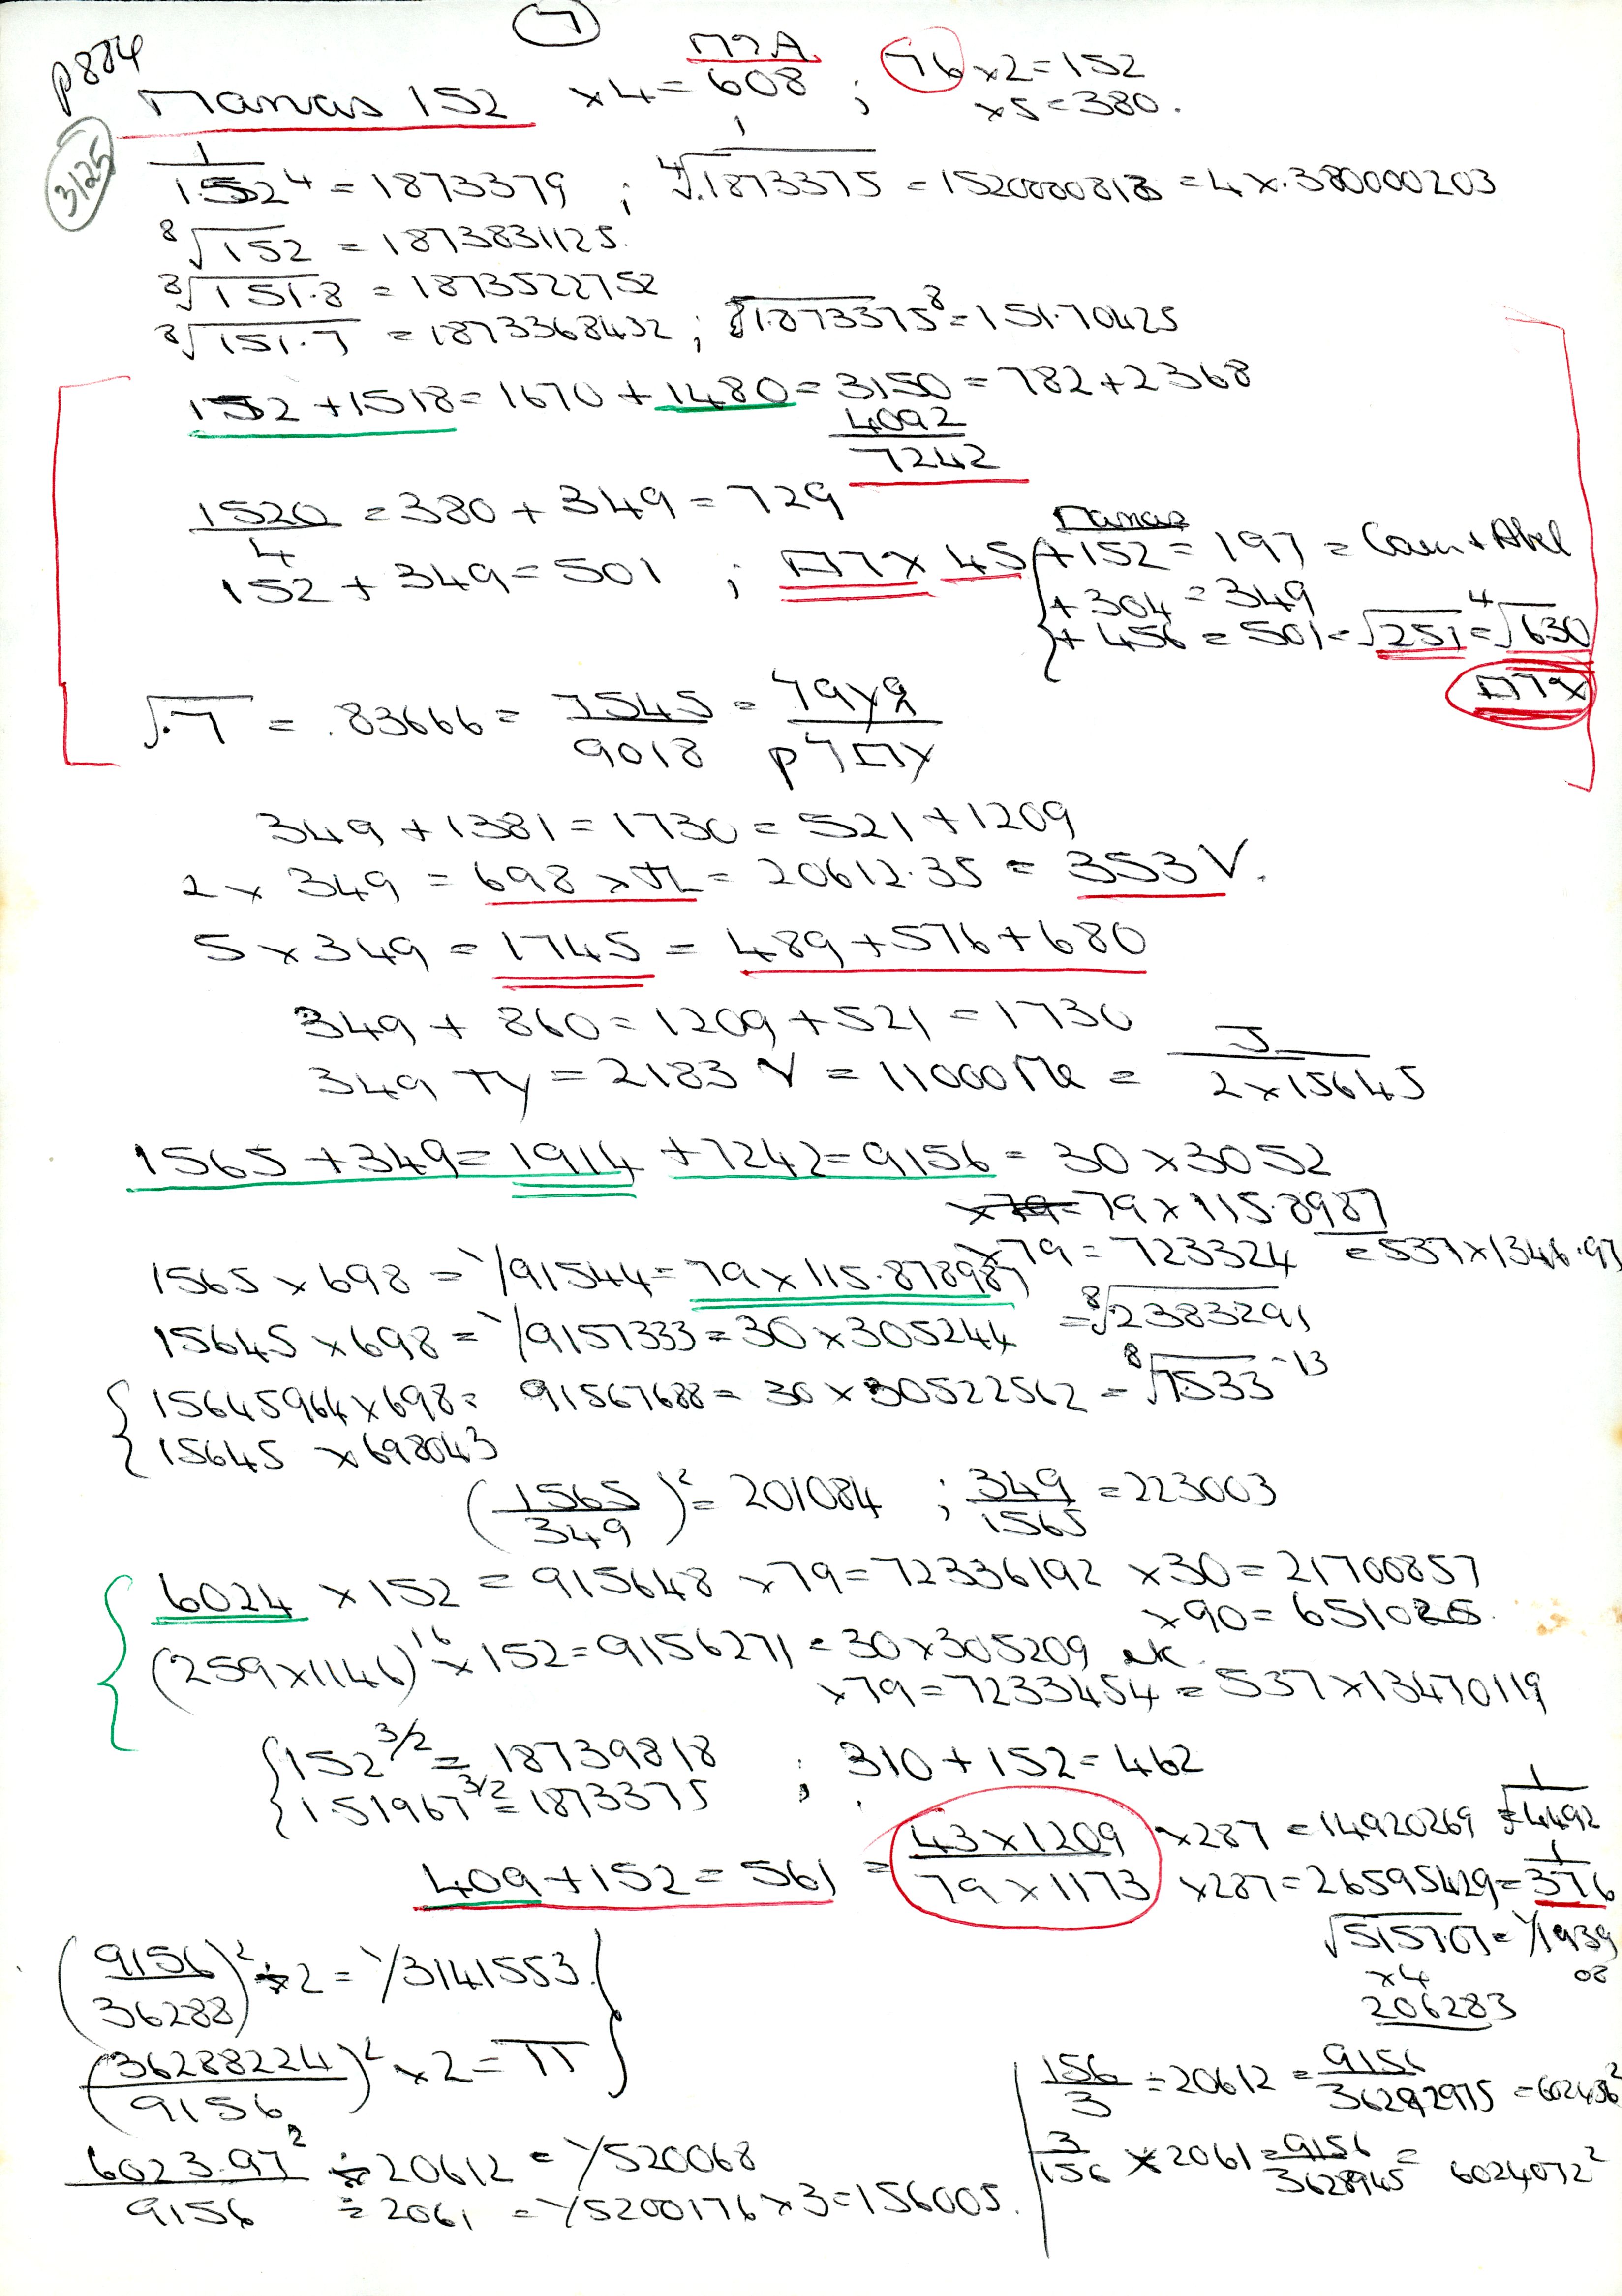 7
p884
3125
Manas 152 ×4 = 608 ; 76 ×2=152
×5=380.
1/1.52⁴ = 1873379 ; 1/⁴√.1873375 = 1520000818 = 4×.380000203
⁸√152 = 1873831125.
⁸√151.8 = 1873522752
⁸√151.7 = 1873368432 ; 1.873375⁸=151.70425
152 + 1518 = 1670 + 1480 = 3150 = 782+2368
4092
7242
1520/4 = 380 + 349 = 729
Manas
152 + 349 = 501 ; 45 +152 = 197 = Cain + Abel
+ 304 = 349
+ 456 = 501 = √251 = ⁴√630
√.7 = .83666 = 7545/9018 =
349 + 1381 = 1730 = 521 + 1209
2 × 349 = 698 × = 20612.35 = 353 V.
5 × 349 = 1745 = 489 + 576 + 680
349 + 860 = 1209 + 521 = 1730
349 Ty = 2183 V = 11000 Me = J/2×15645
1565 + 349 = 1914 + 7242 = 9156 = 30 × 3052
×79 = 79 × 115.8987
×79 = 723324 = 537×1346.97
1565 × 698 = 1/91544 = 79 × 115.878987
= ⁸√2383291
15645 × 698 = 1/9157333 = 30 × 305244
15645964 × 698 = 91567688 = 30 × 30522562 = ⁸√7533⁻¹³
15645 × 698043
(1565/349)² = 201084 ; 349/1565 = 223003
6024 × 152 = 915648 ×79 = 72336192 ×30 = 21700857
×90 = 651026
(259×1146)¹⁶ × 152 = 9156271 = 30×305209 etc.
×79 = 7233454 = 537×13470119
152^3/2 = 18739818 ; 310 + 152 = 462
1.51967^3/2 = 1873375
409 + 152 = 561 = 43 × 1209/79 × 1173 ×287 = 14920269 = 1/√4492
×287 = 26595429 = 1/376
√515707 = 1/193902
×4
206283
(9156/36288)² ÷2 = 1/3141553
(36288224/9156)² ×2 = π
156/3 ÷ 20612 = 9156/36292975 = 602436²
6023.97²/9156 ÷ 20612 = 1/520068
÷ 2061 = 1/5200176 × 3 = 156005.
3/156 × 2061 = 9156/3628945 = 6024072²